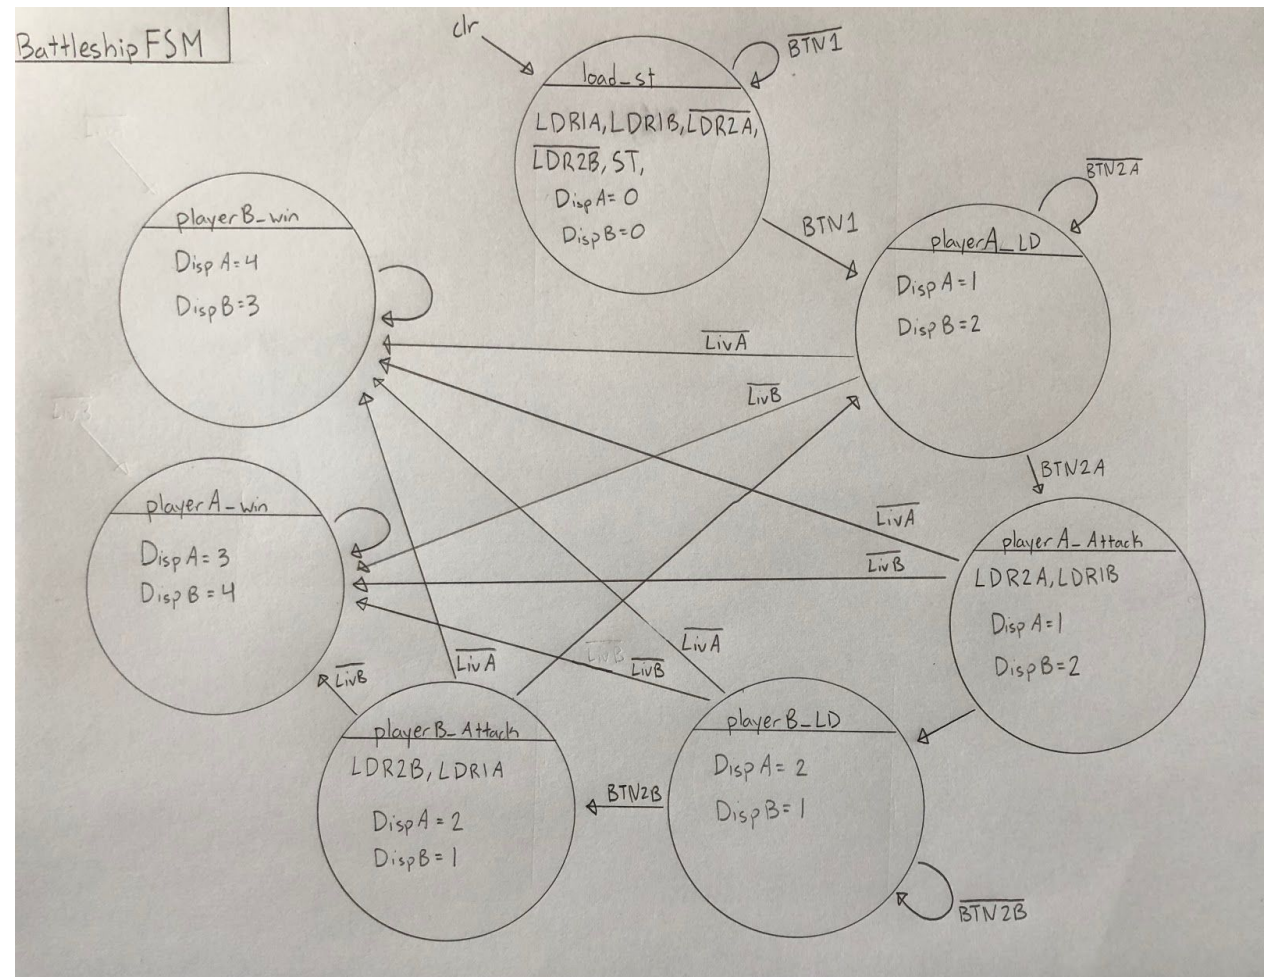 Battleship FSM
clr
B̅T̅N̅1̅
load_st
LDR1A, LDR1B, L̅D̅R̅2̅A̅,
L̅D̅R̅2̅B̅, ST,
DispA= 0
DispB=0
BTN1
B̅T̅N̅2̅A̅
playerA_LD
DispA=1
DispB=2
playerB_win
DispA=4
DispB=3
L̅i̅v̅A̅
L̅i̅v̅B̅
BTN2A
playerA_win
DispA=3
DispB=4
L̅i̅v̅A̅
L̅i̅v̅B̅
playerA_Attack
LDR2A, LDR1B
DispA=1
DispB=2
L̅i̅v̅B̅
L̅i̅v̅A̅
L̅i̅v̅B̅
L̅i̅v̅B̅
L̅i̅v̅A̅
playerB_Attack
LDR2B, LDR1A
DispA=2
DispB=1
BTN2B
playerB_LD
DispA=2
DispB=1
B̅T̅N̅2̅B̅